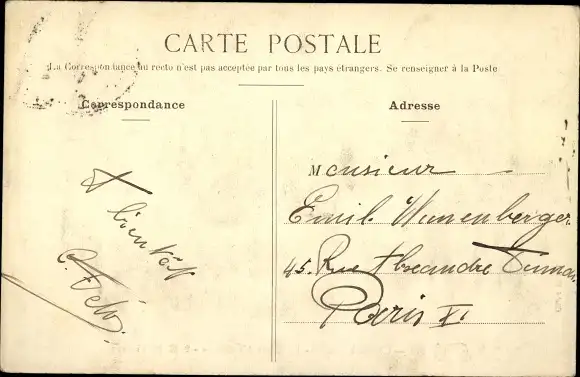 CARTE POSTALE
La Correspondance au recto n'est pas acceptée par tous les pays étrangers. Se renseigner à la Poste
Correspondance
Adresse
A
bientôt
Monsieur
Emile
45. Rue Alexandre Dumas
Paris XI.